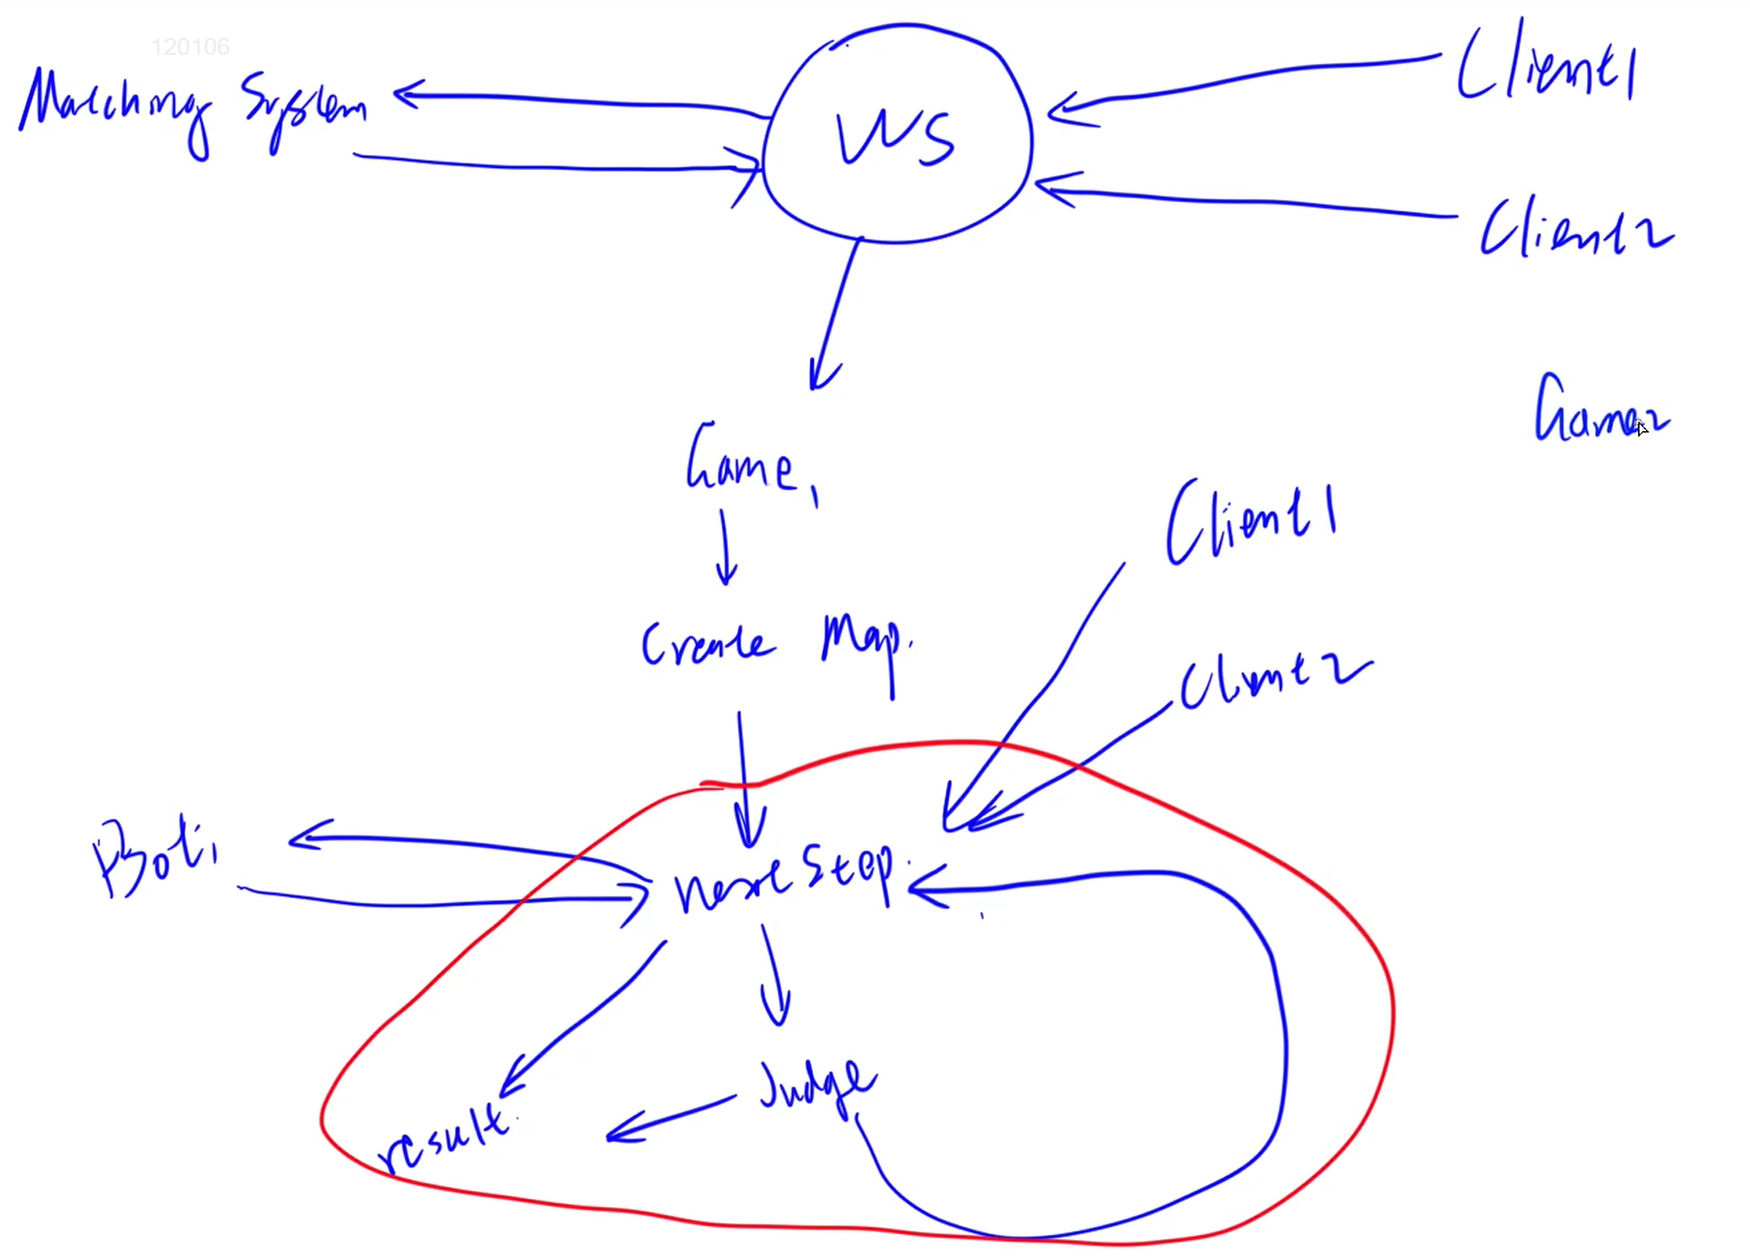 120106
Matching System
WS
Client1
Client2
Game2
Game1
Client1
Create Map.
Client2
Bot1
next Step.
Judge
result.